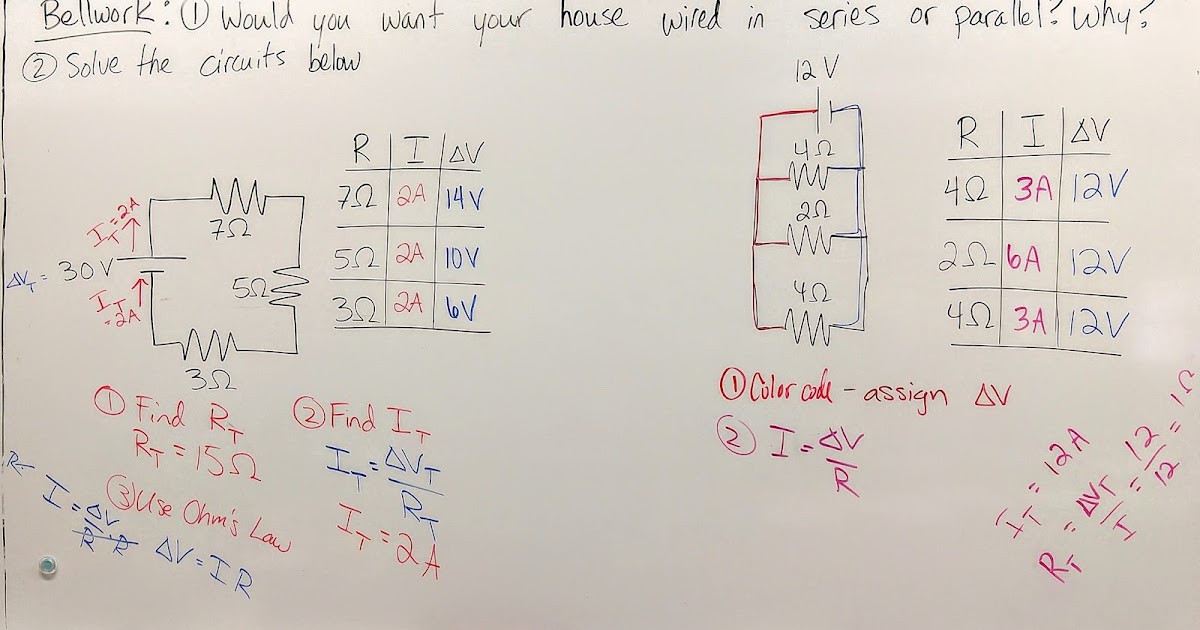 Bellwork: ① Would you want your house wired in series or parallel? Why?
② Solve the circuits below
I_T = 2A
ΔV_T = 30V
I_T = 2A
7Ω
5Ω
3Ω
R I ΔV
7Ω 2A 14V
5Ω 2A 10V
3Ω 2A 6V
① Find R_T
R_T = 15Ω
② Find I_T
I_T = ΔV_T / R_T
I_T = 2A
③ Use Ohm's Law
R_T
I = ΔV / R · R
ΔV = IR
12V
4Ω
2Ω
4Ω
R I ΔV
4Ω 3A 12V
2Ω 6A 12V
4Ω 3A 12V
① Color code - assign ΔV
② I = ΔV / R
I_T = 12A
R_T = ΔV_T / I = 12 / 12 = 1Ω